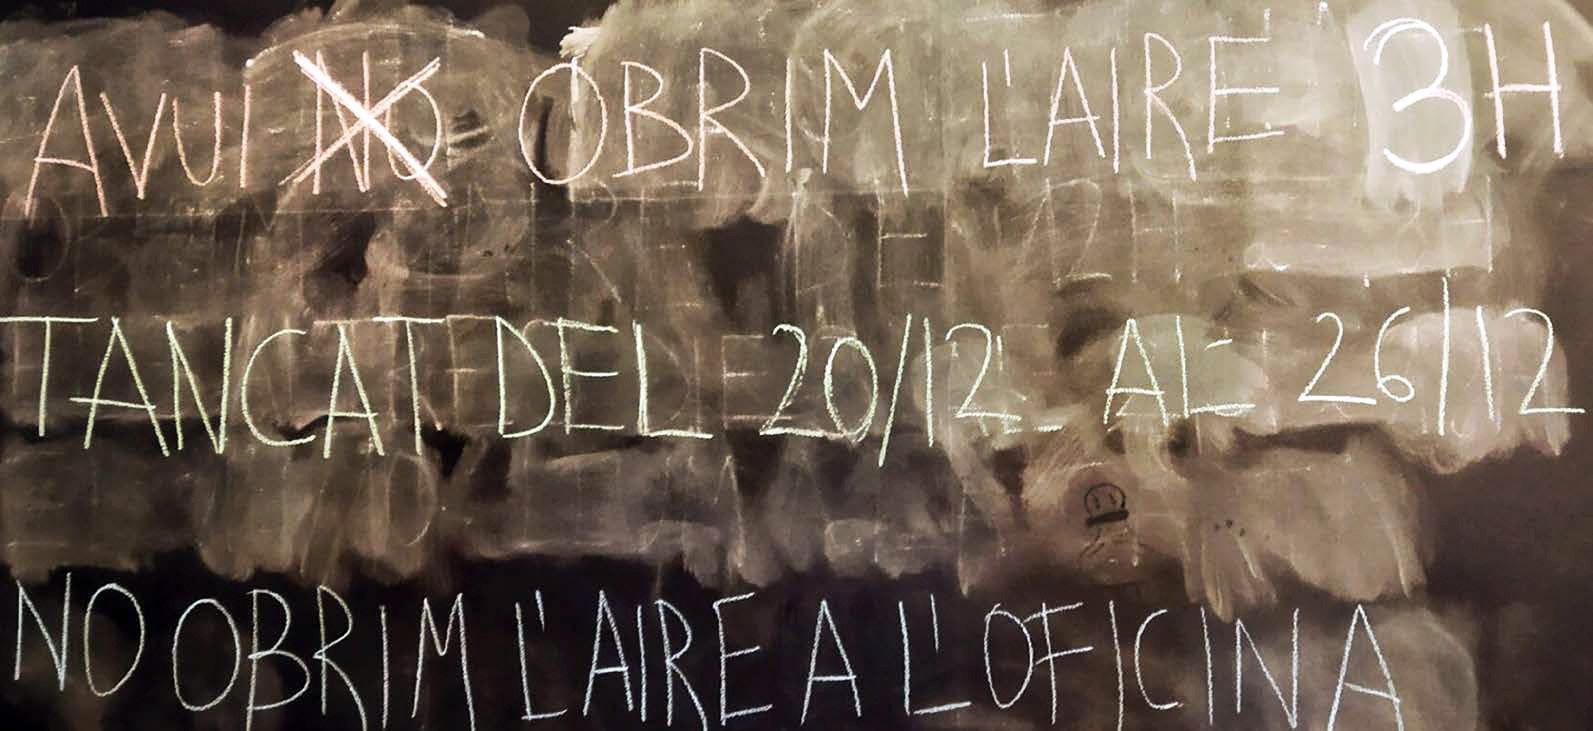 AVUI NO OBRIM L'AIRE 3H
TANCAT DEL 20/12 AL 26/12
NO OBRIM L'AIRE A L'OFICINA